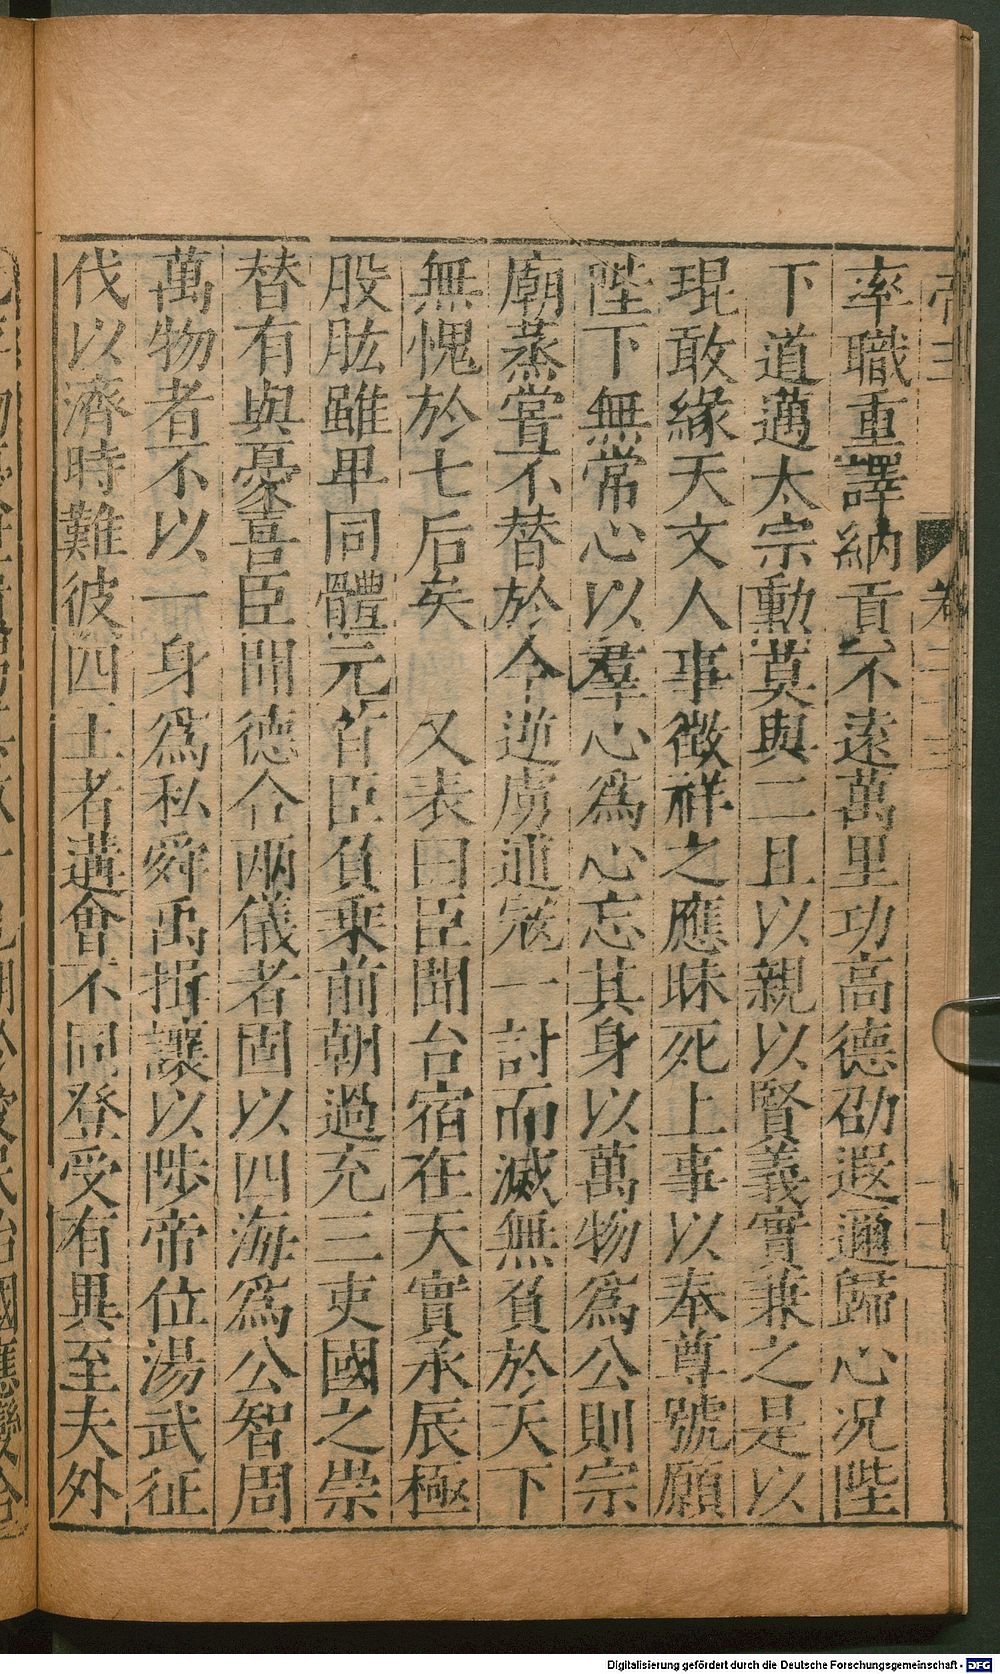 率職重譯納貢不遠萬里功高德劭遐邇歸心况陛
下道邁太宗勳莫與二且以親以賢義實兼之是以
琨敢緣天文人事徵祥之應昧死上事以奉尊號願
陛下無常心以羣心爲心忘其身以萬物爲公則宗
廟蒸嘗不替於今逆虜逋寇一討而滅無負於天下
無愧於七后矣 又表曰臣聞台宿在天實承辰極
股肱雖卑同體元首臣負乗前朝過充三吏國之崇
替有與憂吾臣聞德合兩儀者固以四海爲公智周
萬物者不以一身爲私舜禹揖讓以陟帝位湯武征
伐以濟時難彼四王者遘會不同登受有異至夫外
Digitalisierung gefördert durch die Deutsche Forschungsgemeinschaft - DFG